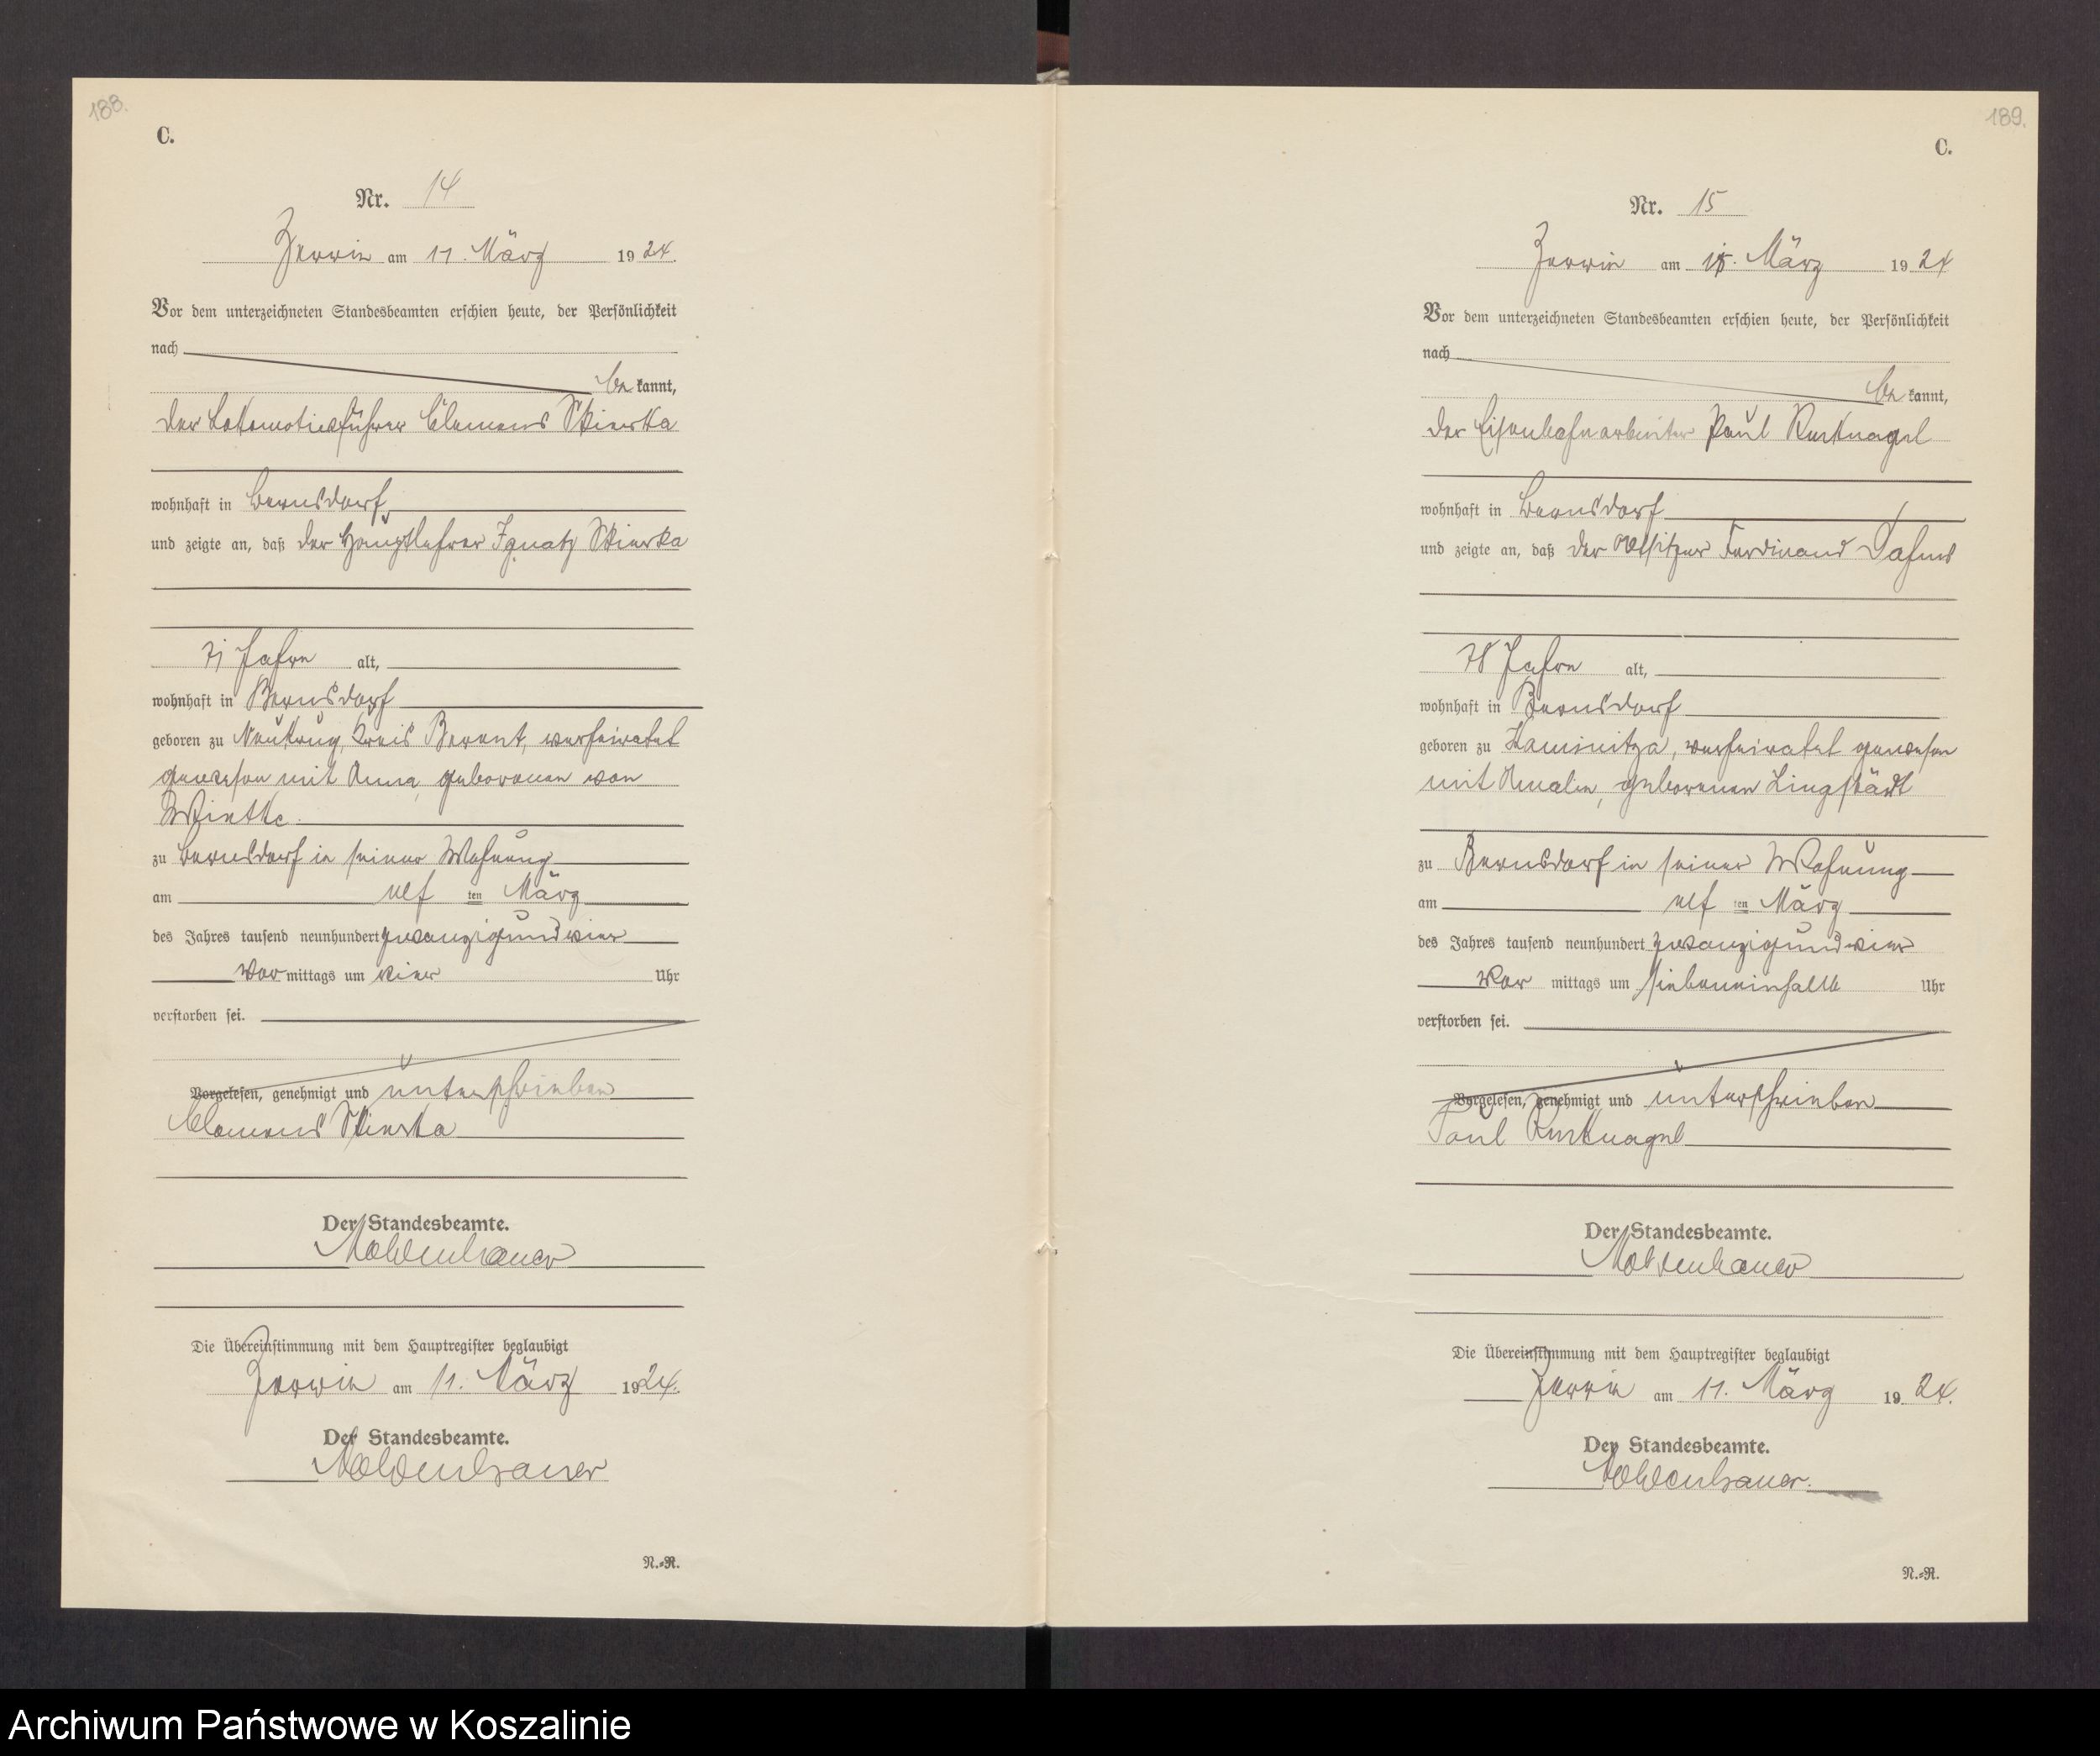 188.
C.
Nr. 14
Zerrin am 11. März 1924.
Vor dem unterzeichneten Standesbeamten erschien heute, der Persönlichkeit
nach
be kannt,
der Lokomotivführer Clemens Skierka
wohnhaft in Bernsdorf,
und zeigte an, daß der Hauptlehrer Ignatz Skierka
71 Jahre alt,
wohnhaft in Bernsdorf
geboren zu Neukrug, Kreis Berent, verheiratet
gewesen mit Anna, geborenen von
zu Bernsdorf in seiner Wohnung
am elf ten März
des Jahres tausend neunhundert zwanzigundvier
Vor mittags um vier Uhr
verstorben sei.
Vorgelesen, genehmigt und unterschrieben
Clemens Skierka
Der Standesbeamte.
Moldenhauer
Die Übereinstimmung mit dem Hauptregister beglaubigt
Zerrin am 11. März 1924.
Der Standesbeamte.
Moldenhauer
N.=R.
189.
C.
Nr. 15
Zerrin am März 1924
Vor dem unterzeichneten Standesbeamten erschien heute, der Persönlichkeit
nach
be kannt,
der Eisenbahnarbeiter Paul Rucknagel
wohnhaft in Bernsdorf
und zeigte an, daß der Altsitzer Ferdinand Dahms
78 Jahre alt,
wohnhaft in Bernsdorf
geboren zu Kaminitza, verheiratet gewesen
mit geborenen Lingstädt
zu Bernsdorf in seiner Wohnung
am elf ten März
des Jahres tausend neunhundert zwanzigundvier
Vor mittags um siebeneinhalb Uhr
verstorben sei.
Vorgelesen, genehmigt und unterschrieben
Paul Rucknagel
Der Standesbeamte.
Moldenhauer
Die Übereinstimmung mit dem Hauptregister beglaubigt
Zerrin am 11. März 1924.
Der Standesbeamte.
Moldenhauer.
N.=R.
Archiwum Państwowe w Koszalinie